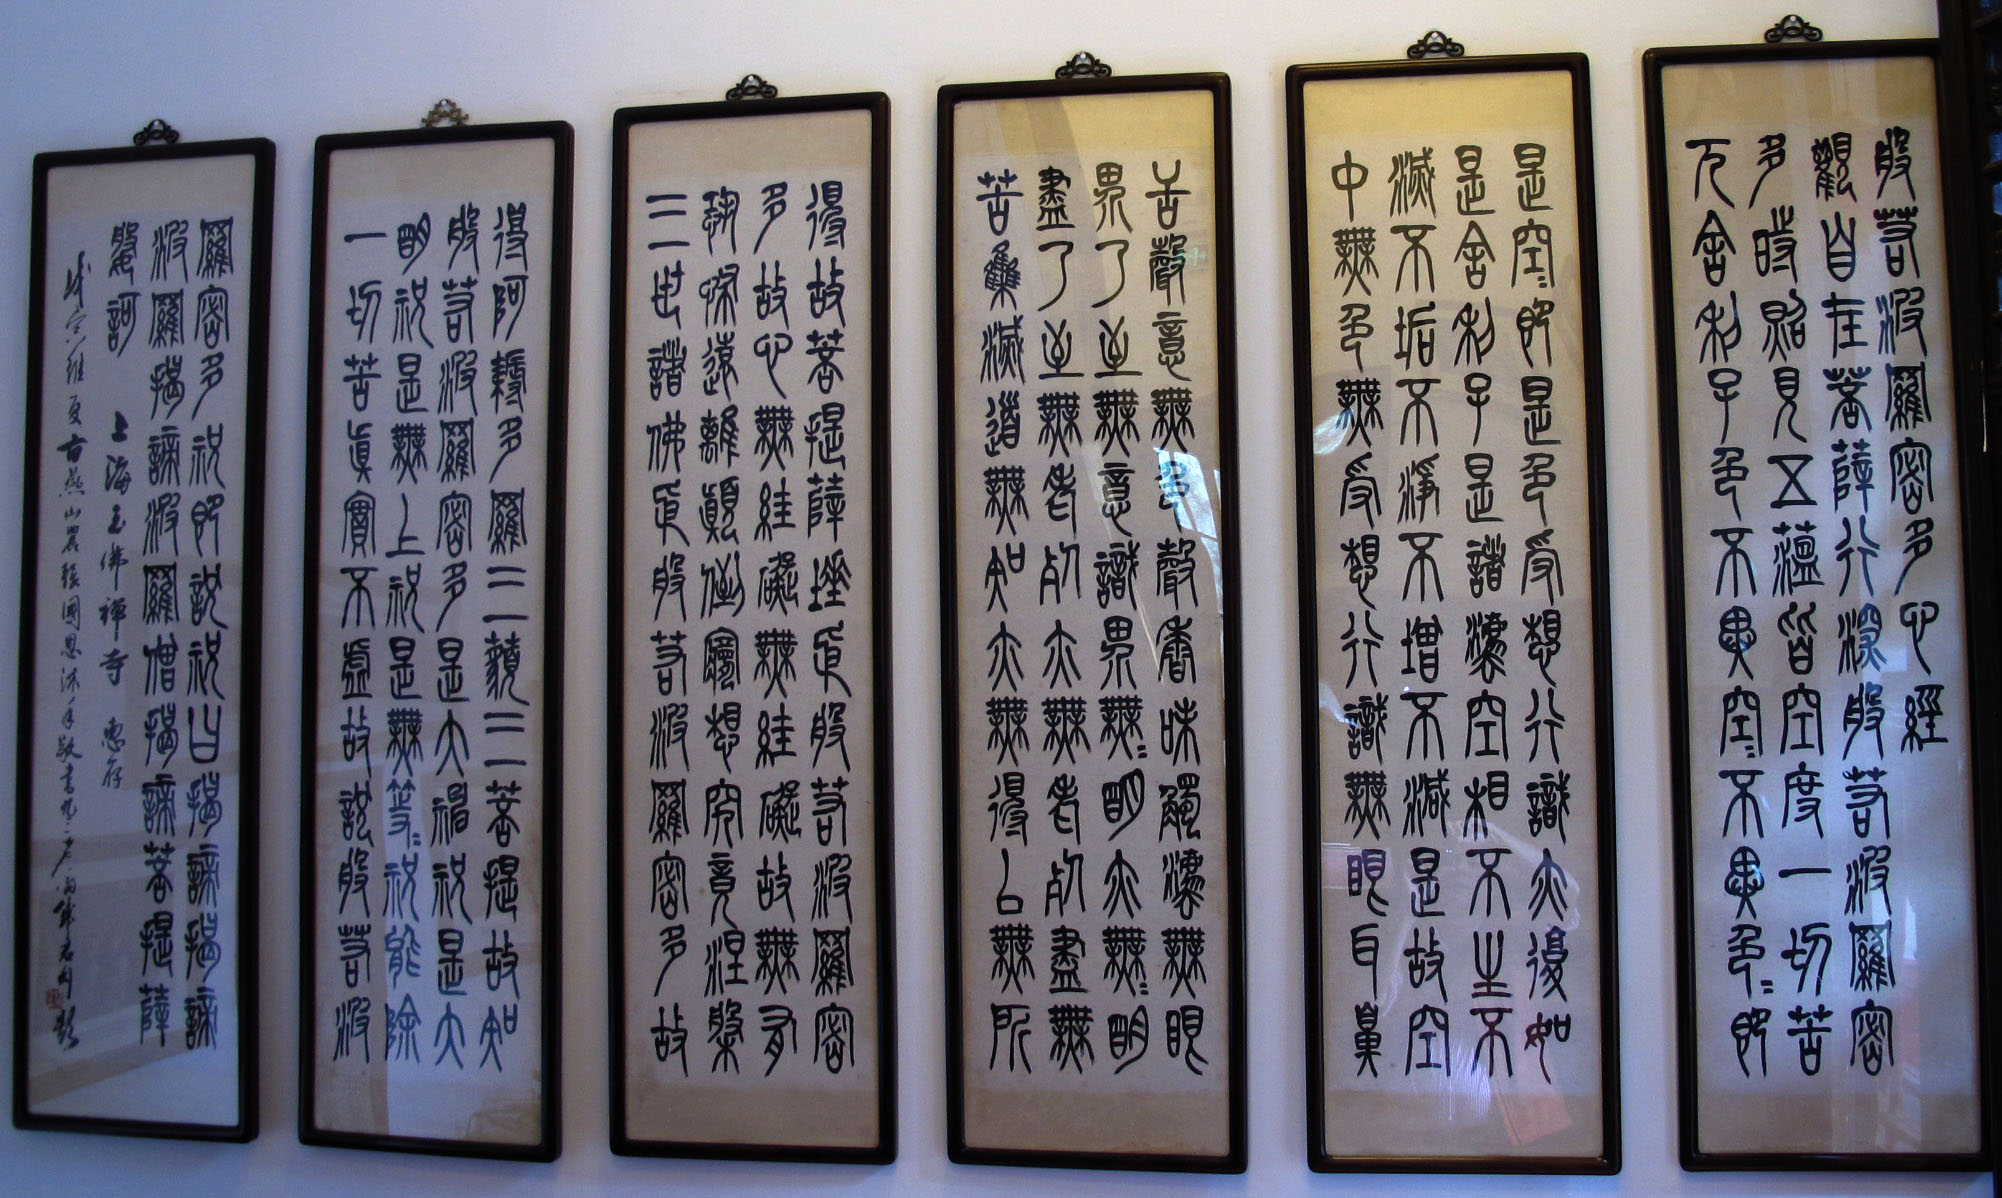 般若波羅密多心經
觀自在菩薩行深般若波羅密
多時照見五蘊皆空度一切苦
厄舍利子色不異空〻不異色〻即
是空〻即是色受想行識亦復如
是舍利子是諸法空相不生不
滅不垢不淨不增不減是故空
中無色無受想行識無眼耳鼻
舌聲意無色聲香味觸法無眼
界乃至無意識界無〻明亦無〻明
盡乃至無老死亦無老死盡無
苦集滅道無知亦無得以無所
得故菩提薩埵依般若波羅密
多故心無罣礙無罣礙故無有
恐怖遠離顛倒夢想究竟涅槃
三世諸佛依般若波羅密多故
得阿耨多羅三藐三菩提故知
般若波羅密多是大神呪是大
明呪是無上呪是無等〻呪能除
一切苦真實不虛故說般若波
羅密多呪即說呪曰揭諦揭諦
波羅揭諦波羅僧揭諦菩提薩
婆訶 上海玉佛禪寺 惠存
維夏古燕山農張國恩沐手敬書